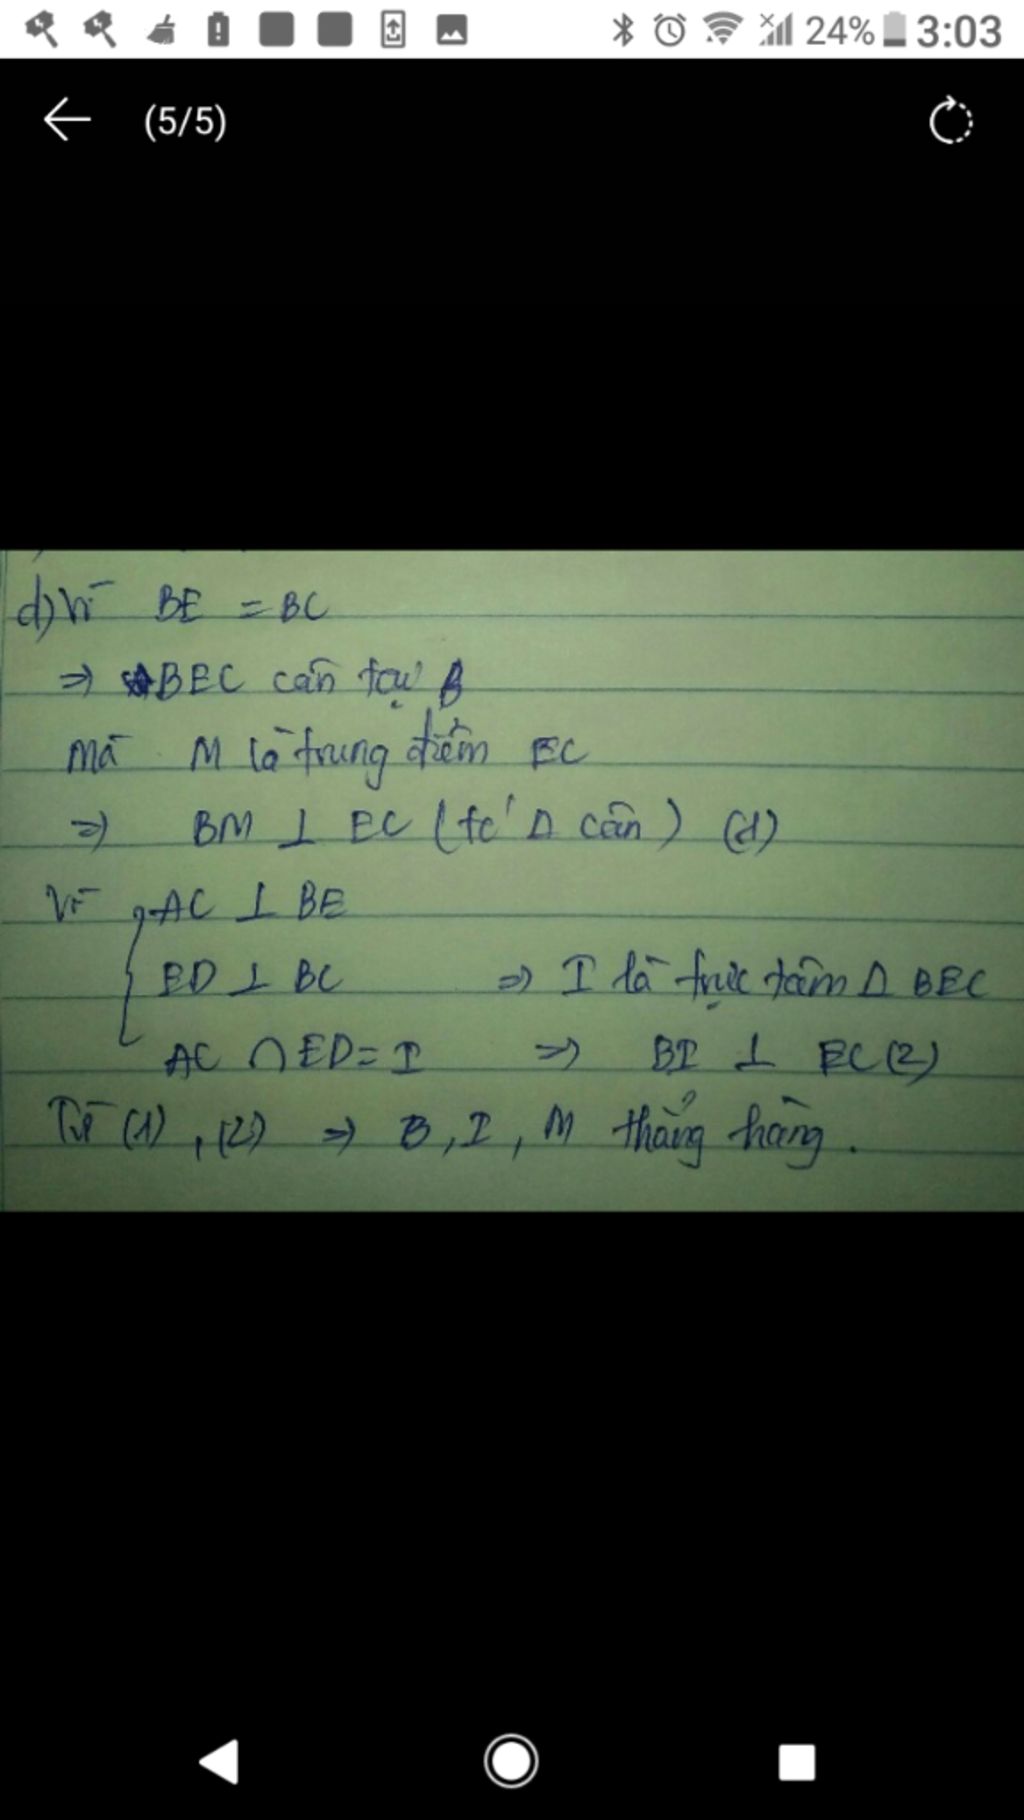 24% 3:03
(5/5)
d) Vì BE = BC
=> BEC cân tại B
Mà M là trung điểm EC
=> BM ⊥ EC (tc' Δ cân) (1)
Vì { AC ⊥ BE
ED ⊥ BC => I là trực tâm Δ BEC
AC ∩ ED = I => BI ⊥ EC (2)
Từ (1), (2) => B, I, M thẳng hàng.